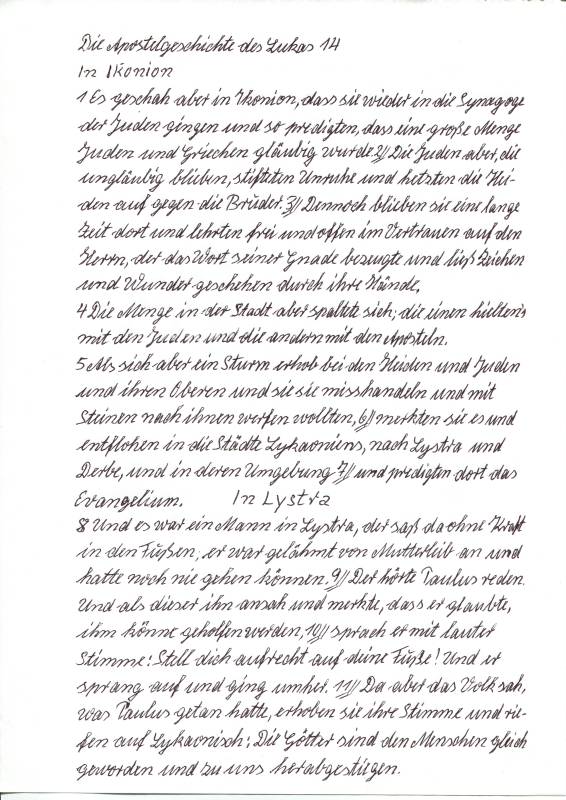 Die Apostelgeschichte des Lukas 14
In Ikonion
1 Es geschah aber in Ikonion, dass sie wieder in die Synagoge
der Juden gingen und so predigten, dass eine große Menge
Juden und Griechen gläubig wurde. 2// Die Juden aber, die
ungläubig blieben, stifteten Unruhe und hetzten die Hei-
den auf gegen die Brüder. 3// Dennoch blieben sie eine lange
Zeit dort und lehrten frei und offen im Vertrauen auf den
Herrn, der das Wort seiner Gnade bezeugte und ließ Zeichen
und Wunder geschehen durch ihre Hände.
4 Die Menge in der Stadt aber spaltete sich; die einen hielten's
mit den Juden und die andern mit den Aposteln.
5 Als sich aber ein Sturm erhob bei den Heiden und Juden
und ihren Oberen und sie sie misshandeln und mit
Steinen nach ihnen werfen wollten, 6// merkten sie es und
entflohen in die Städte Lykaoniens, nach Lystra und
Derbe, und in deren Umgebung 7// und predigten dort das
Evangelium. In Lystra
8 Und es war ein Mann in Lystra, der saß da ohne Kraft
in den Füßen; er war gelähmt von Mutterleib an und
hatte noch nie gehen können. 9// Der hörte Paulus reden.
Und als dieser ihn ansah und merkte, dass er glaubte,
ihm könne geholfen werden, 10// sprach er mit lauter
Stimme: Stell dich aufrecht auf deine Füße! Und er
sprang auf und ging umher. 11// Da aber das Volk sah,
was Paulus getan hatte, erhoben sie ihre Stimme und rie-
fen auf Lykaonisch: Die Götter sind den Menschen gleich
geworden und zu uns herabgestiegen.